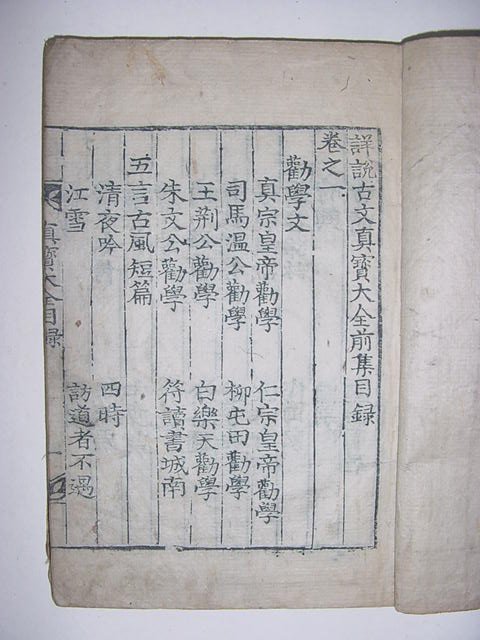 詳説古文真寶大全前集目録
卷之一
勸學文
真宗皇帝勸學 仁宗皇帝勸學
司馬温公勸學 柳屯田勸學
王荆公勸學 白樂天勸學
朱文公勸學 符讀書城南
五言古風短篇
清夜吟 四時
江雪 訪道者不遇
真寶大全目録 一